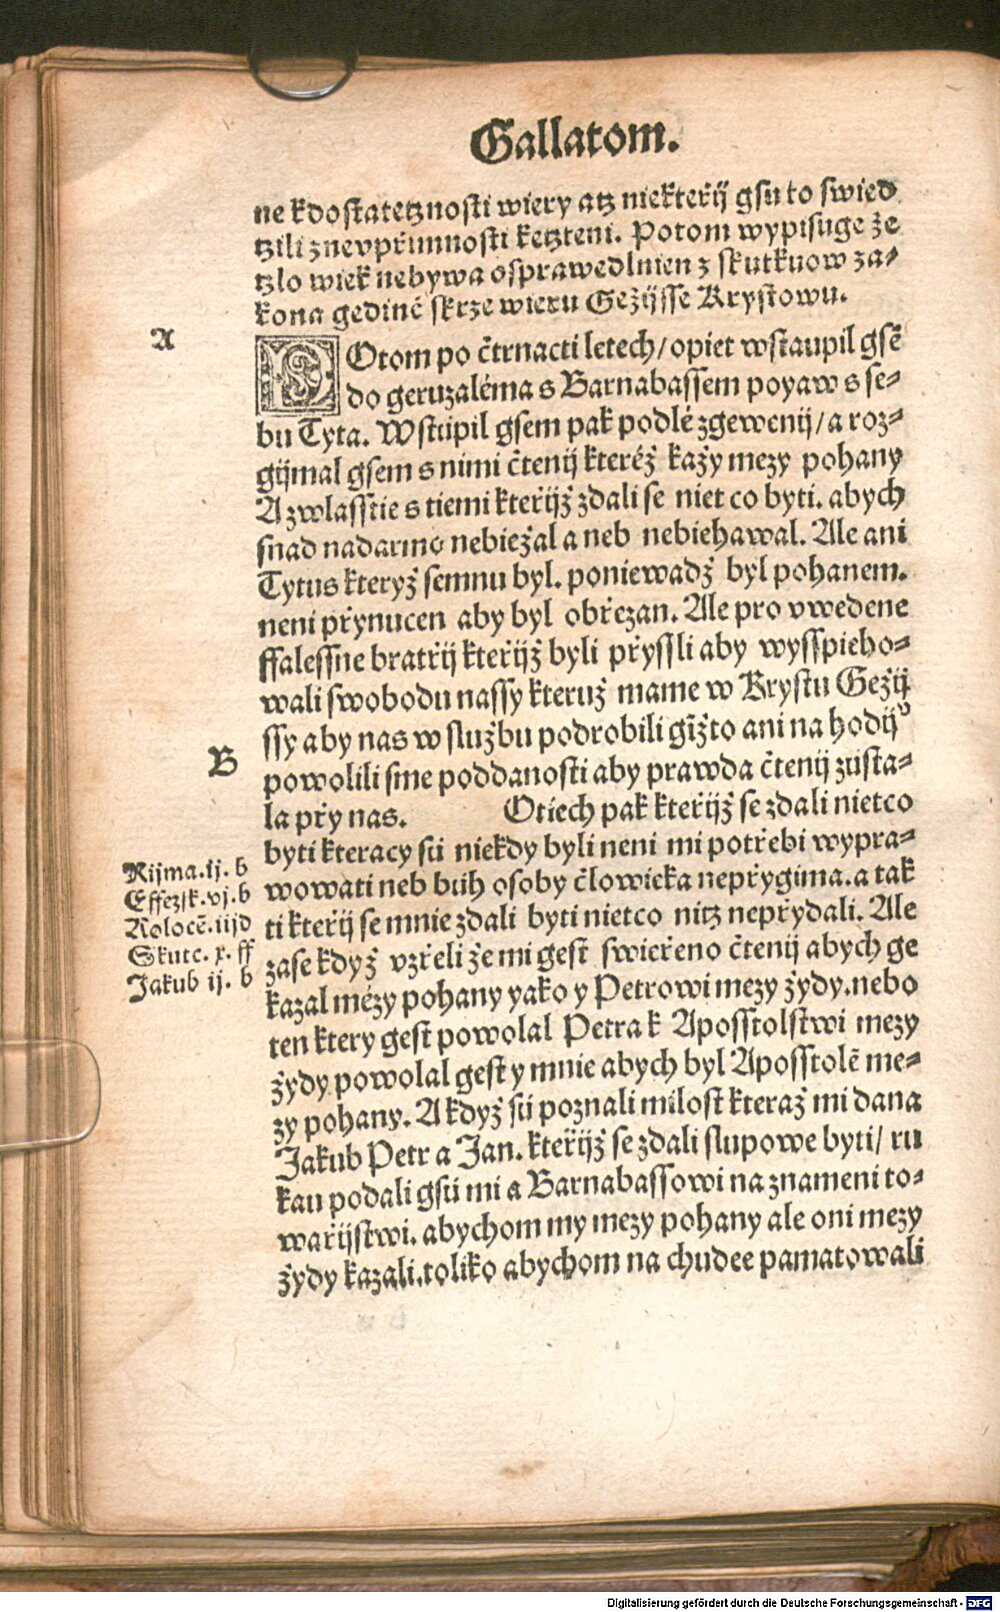 Gallatom.
ne k dostatetznosti wiery atz niekteřij gsu to swied
tzili z nevpřimnosti ketzteni. Potom wypisuge že
tzlo wiek nebywa osprawedlnien z skutkuow za⸗
kona gedinē skrze wieru Gežijsse Krystowu.
A
POtom po čtrnacti letech/ opiet wstaupil gsē
do geruzaléma s Barnabassem poyaw s se⸗
bu Tyta. Wstúpil gsem pak podlé zgewenij/ a roz⸗
gijmal gsem s nimi čtenij kteréž każy mezy pohany
A zwlasstie s tiemi kteřijž zdali se niet co byti. abych
snad nadarmo nebiežal a neb nebiehawal. Ale ani
Tytus kteryž semnu byl. poniewadž byl pohanem.
neni přynucen aby byl obřezan. Ale pro vwedene
ffalessne bratřij kteřijž byli přyssli aby wysspieho⸗
wali swobodu nassy kteruž mame w Krystu Gežij
ssy aby nas w službu podrobili gīžto ani na hodijͧ
B
powolili sme poddanosti aby prawda čtenij zusta⸗
la pry nas. Otiech pak kteřijž se zdali nietco
byti kteracy sú niekdy byli neni mi potřebi wypra⸗
wowati neb buh osoby člowieka nepřygima. a tak
ti kteřij se mnie zdali byti nietco nitz nepřydali. Ale
zase když vzřeli že mi gest swieřeno čtenij abych ge
kazal mézy pohany yako y Petrowi mezy żydy. nebo
ten ktery gest powolal Petra k Aposstolstwi mezy
żydy powolal gest y mnie abych byl Aposstolē me⸗
zy pohany. A když sú poznali milost kteraž mi dana
Jakub Petr a Jan. kteřijž se zdali slupowe byti/ ru
kau podali gsú mi a Barnabassowi na znameni to⸗
wařijstwi. abychom my mezy pohany ale oni mezy
żydy kazali. toliko abychom na chudee pamatowali
Rijma. ij. b
Effezsk. vj. b
Kolocē. iijd
Skutc. x. ff
Jakub ij. b
Digitalisierung gefördert durch die Deutsche Forschungsgemeinschaft - DFG